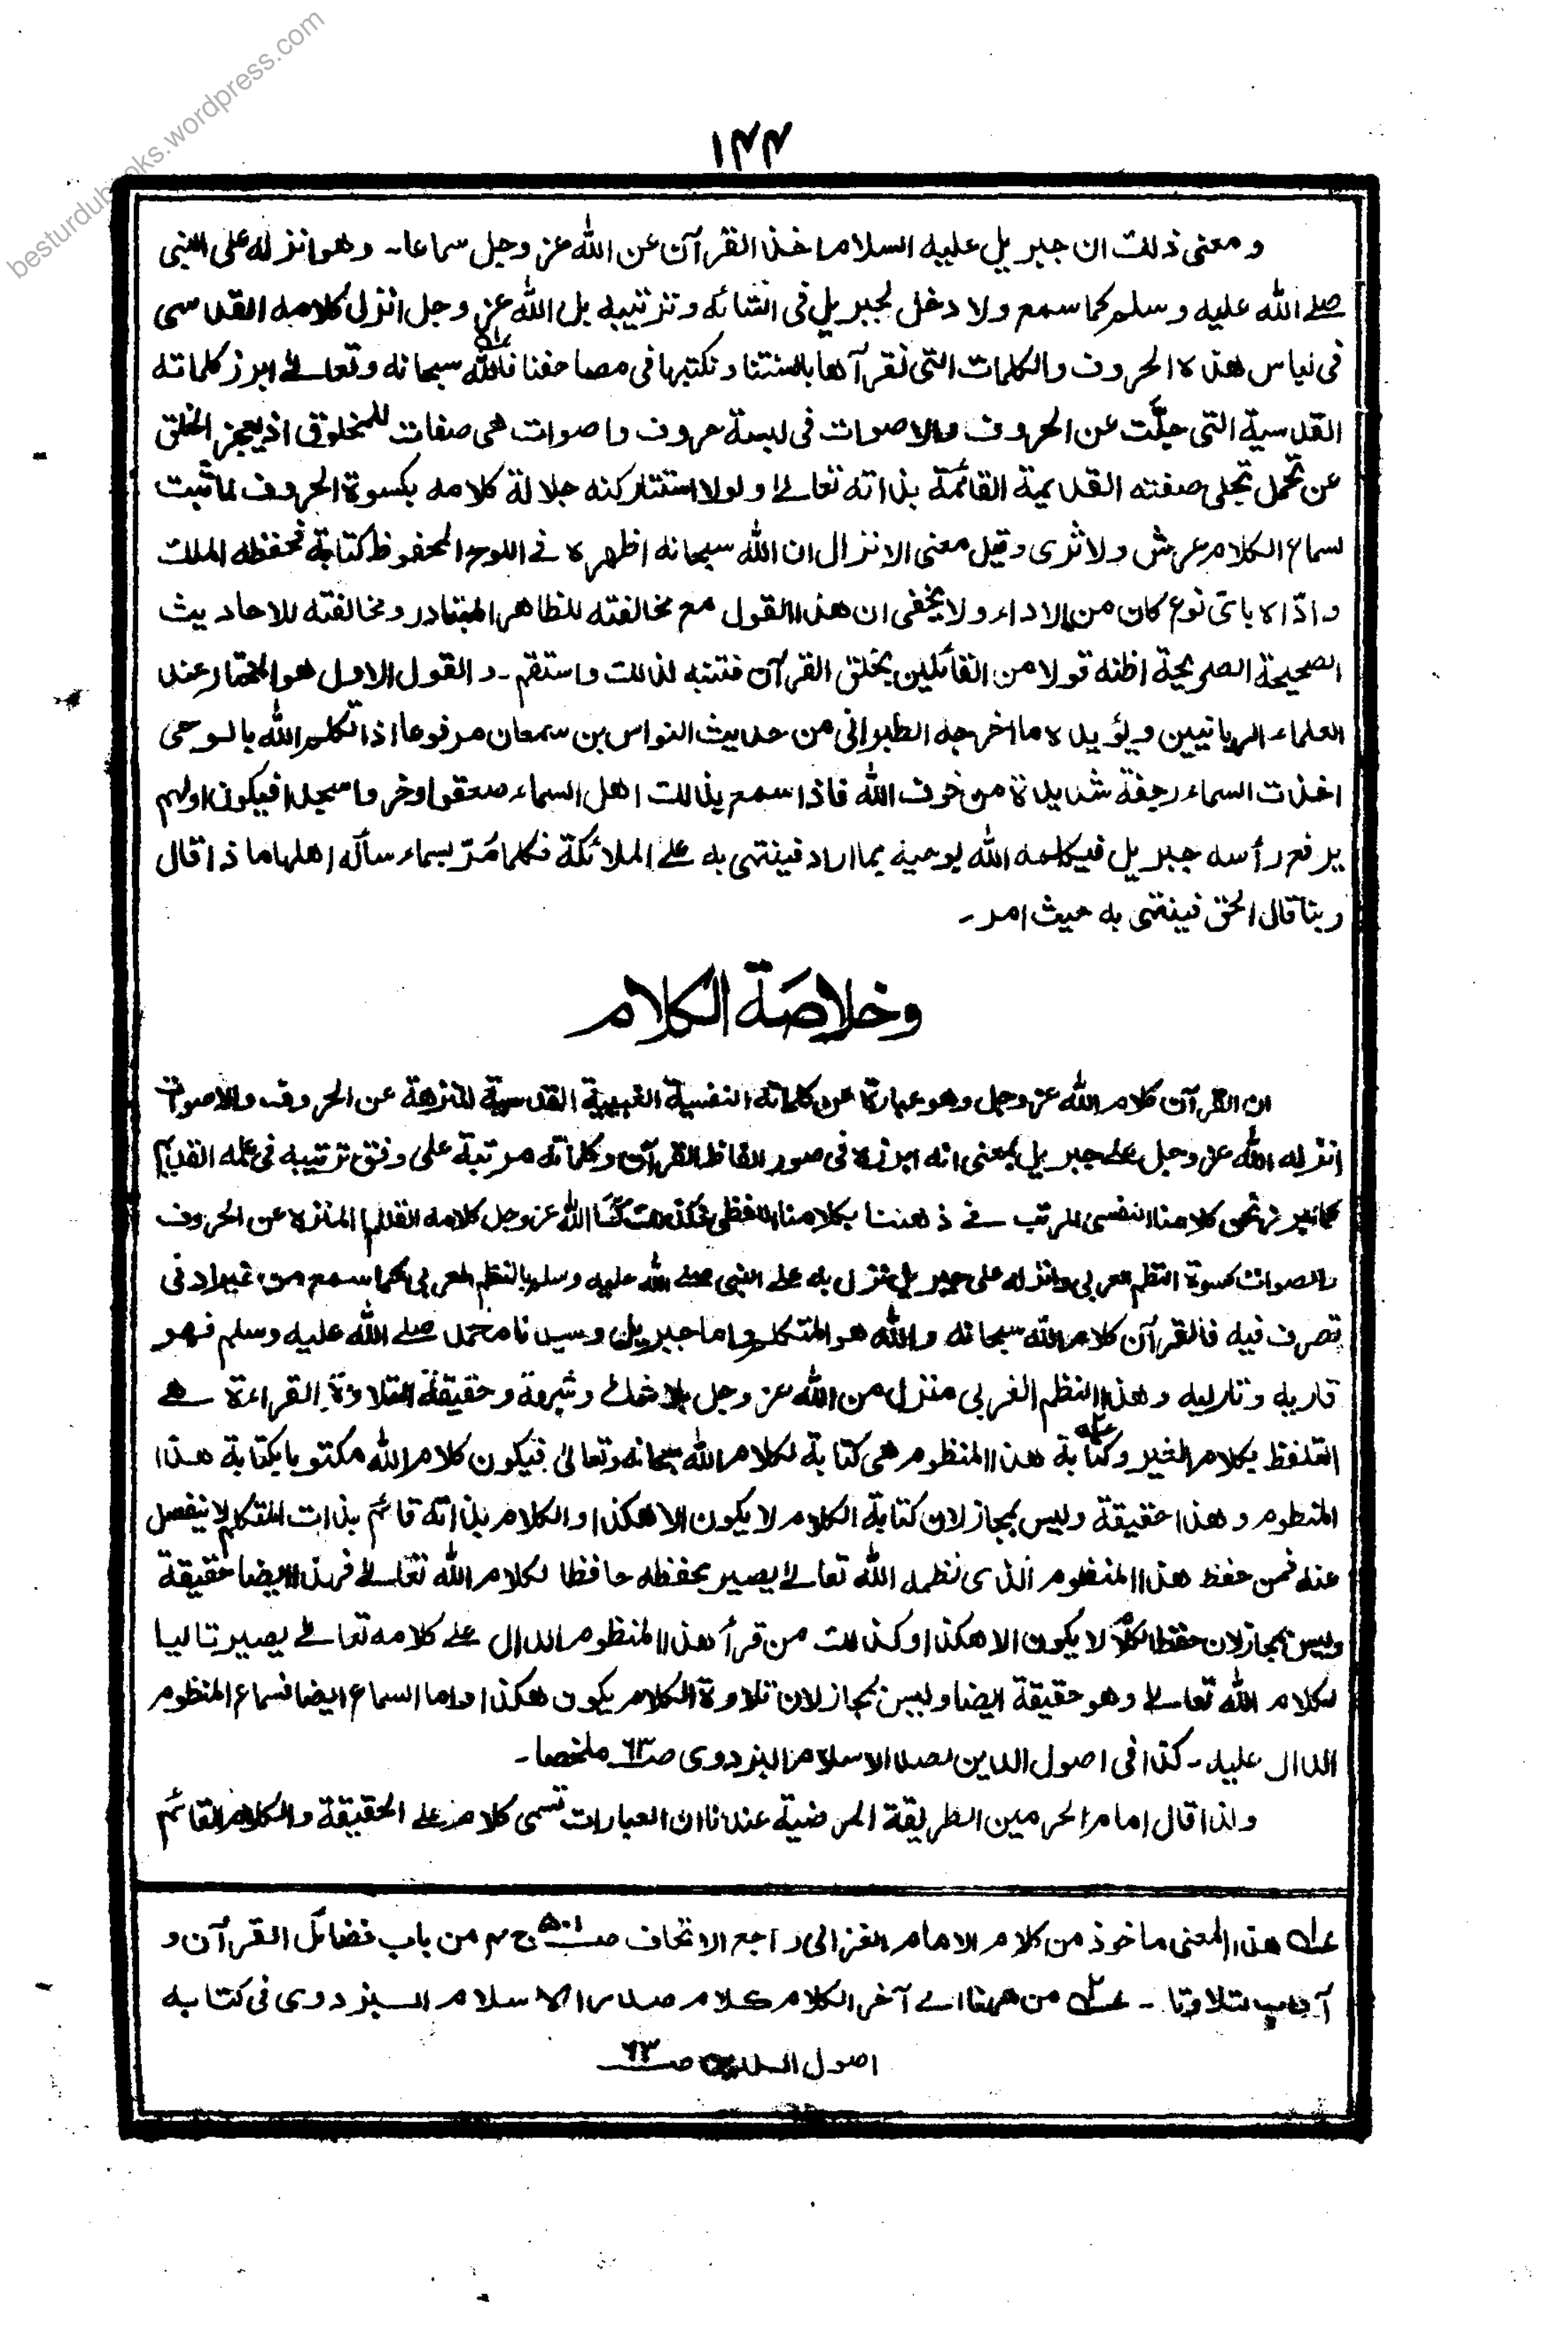 besturdubooks.wordpress.com
۱۴۴
و معنی ذلك ان جبریل علیه السلام اخذ القرآن عن الله عز وجل سماعا۔ وهو انزله علی النبی
صلے الله علیه وسلم كما سمع ولا دخل لجبریل فی انشائه وترتیبه بل الله عز وجل انزل كلامه القدسی
فی لباس هذه الحروف والكلمات التی نقرآها بالسنتنا ونكتبها فی مصاحفنا فالله سبحانه وتعالے ابرز كلماته
القدسیة التی جلّت عن الحروف والاصوات فی لبسة حروف واصوات هی صفات للمخلوق اذ یعجز الخلق
عن تحمل تجلی صفته القدیمیة القائمة بذاته تعالے ولولا استتار كنه جلالة كلامه بكسوة الحروف لما ثبت
لسماع الكلام عرش ولا ثری وقیل معنی الانزال ان الله سبحانه اظهره فے اللوح المحفوظ كتابة فحفظه الملك
وادّاه بای نوع كان من الاداء ولا یخفی ان هذا القول مع مخالفته للظاهر المتبادر ومخالفته للاحادیث
الصحیحة الصریحة اظنه قولا من القائلین بخلق القرآن فتنبه لذلك واستقم۔ والقول الاول هو المختار عند
العلماء الربانیین ویؤیده ما اخرجه الطبرانی من حدیث النواس بن سمعان مرفوعا اذا تكلم الله بالوحی
اخذت السماء رجفة شدیدة من خوف الله فاذا سمع بذلك اهل السماء صعقوا وخروا سجدا فیكون اولهم
یرفع رأسه جبریل فیكلمه الله بوحیه بما اراد فینتهی به علے الملائكة فكلما مَرّ بسماء سأله اهلها ماذا قال
ربنا قال الحق فینتهی به حیث امر۔
وخلاصَة الكلام
ان القرآن كلام الله عز وجل وهو عبارة عن كلماته النفسیة الغیبیة القدسیة المنزهة عن الحروف والاصوات
انزله الله عز وجل علے جبریل بمعنی انه ابرزه فی صور الفاظ القرآن وكلماته مرتبة علی وفق ترتیبه فی علمه القدیم
كما نبرز نحن كلامنا النفسی المرتب فے ذهننا بكلامنا اللفظی فكذلك كَسَا الله عز وجل كلامه القدیم المنزه عن الحروف
والصوات كسوة النظم العربی وانزله علی جبریل فنزل به علے النبی صلے الله علیه وسلم بالنظم العربی كما سمع من غیر ادنی
تصرف فیه فالقرآن كلام الله سبحانه والله هو المتكلم واما جبریل وسیدنا محمد صلے الله علیه وسلم فهو
قاریه وتالیه وهذا النظم العربی منزل من الله عز وجل بلا شك وشبهة وحقیقة التلاوة القراءة هے
التلفظ بكلام الغیر وكتابة هذا المنظوم هی كتابة لكلام الله سبحانه وتعالی فیكون كلام الله مكتوبا بكتابة هذا
المنظوم وهذا حقیقة ولیس بمجاز لان كتابة الكلام لا یكون الا هكذا والكلام بذاته قائم بذات المتكلم لا ینفصل
عنه فمن حفظ هذا المنظوم الذی نظمه الله تعالے یصیر بحفظه حافظا لكلام الله تعالے فهذا ایضا حقیقة
ولیس بمجاز لان حفظ الكلام لا یكون الا هكذا وكذلك من قرأ هذا المنظوم الدال علے كلامه تعالے یصیر تالیا
لكلام الله تعالے وهو حقیقة ایضا ولیس بمجاز لان تلاوة الكلام یكون هكذا واما السماع ایضا فسماع المنظوم
الدال علیه۔ كذا فی اصول الدین لصدر الاسلام البزدوی صـ۶۳ ملخصا۔
ولذا قال امام الحرمین الطریقة المرضیة عندنا ان العبارات تسمی كلام علے الحقیقة والكلام القائم
عـ۱ هذا المعنی ماخوذ من كلام الامام الغزالی راجع الاتحاف صـ۵۰۱ ج ۴ من باب فضائل القرآن و
آداب تلاوتا۔ عـ۲ من ههنا الے آخر الكلام كلام صدر الاسلام البزدوی فی كتابه
اصول الدین صـ۶۳